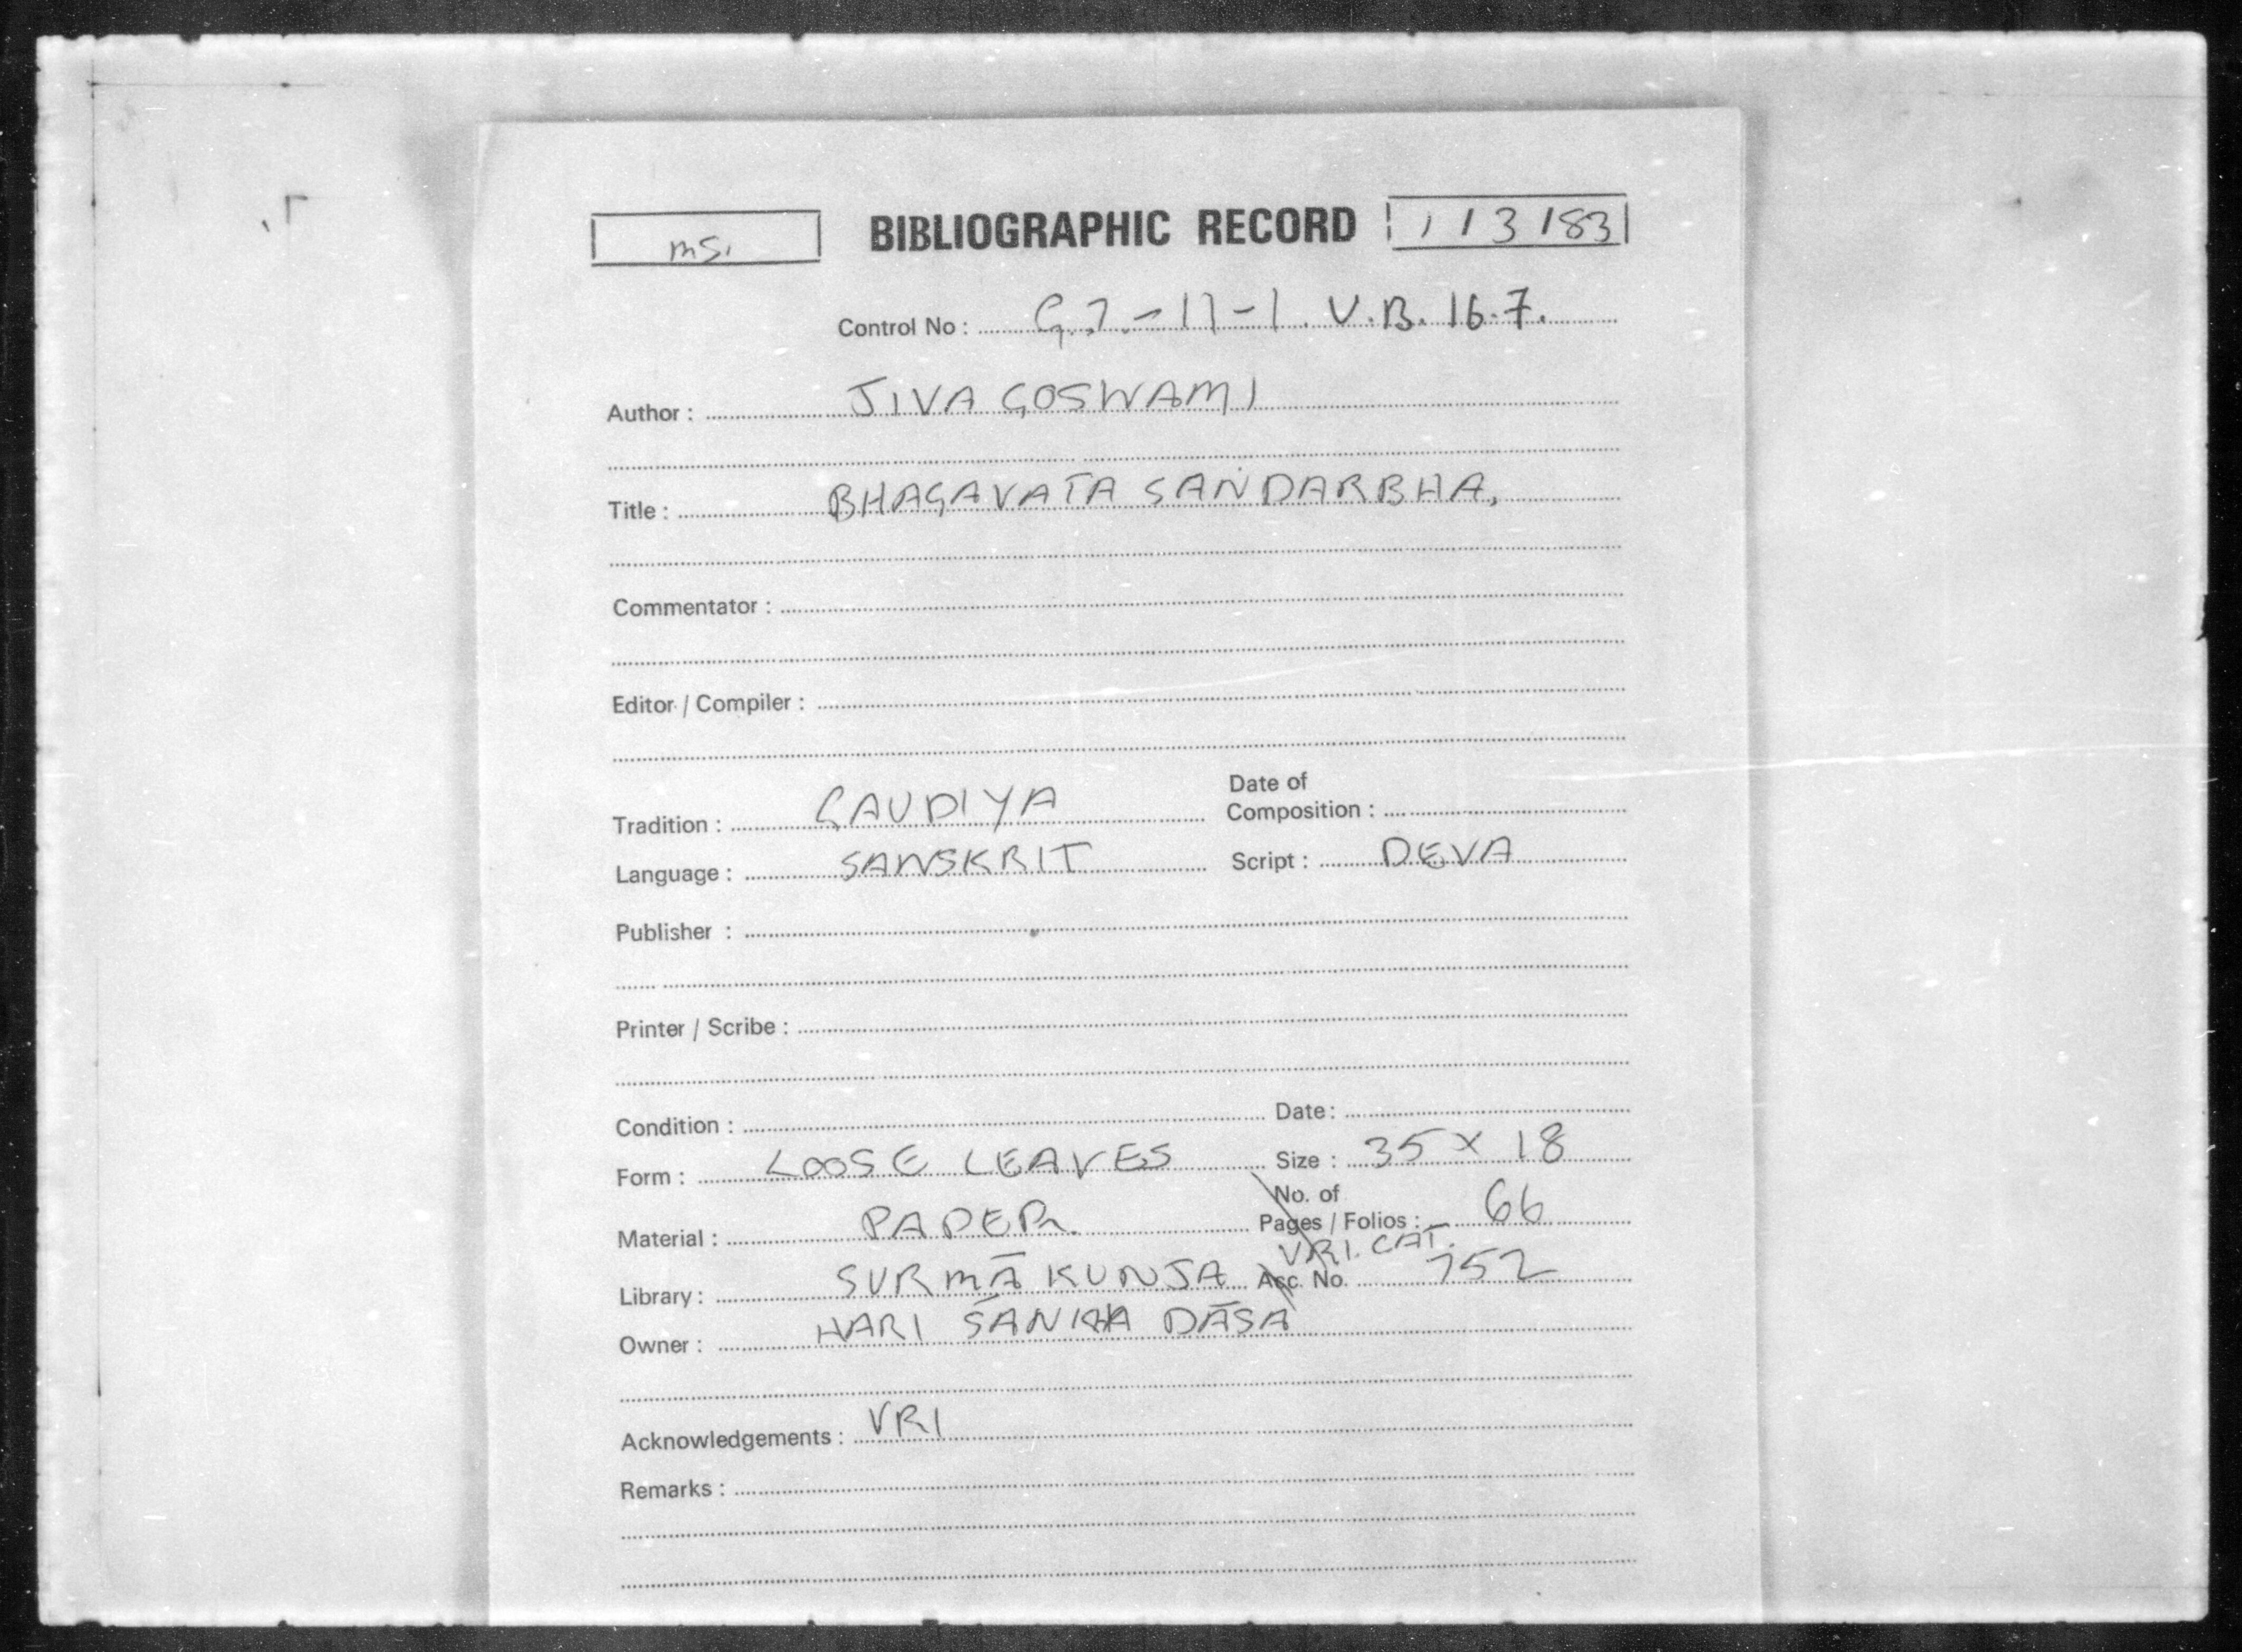 ms. BIBLIOGRAPHIC RECORD 113183
Control No : G.7.-11-1. V.B. 16.7.
Author : JIVA GOSWAMI
Title : BHAGAVATA SANDARBHA,
Commentator :
Editor / Compiler :
Tradition : GAUDIYA Date of Composition :
Language : SANSKRIT Script : DEVA
Publisher :
Printer / Scribe :
Condition : Date :
Form : LOOSE LEAVES Size : 35 x 18
Material : PAPER. No. of Pages / Folios : 66
VRI. CAT.
Library : SURMĀ KUNJA Acc. No. 752
Owner : HARI ŚANKHA DĀSA
Acknowledgements : VRI
Remarks :